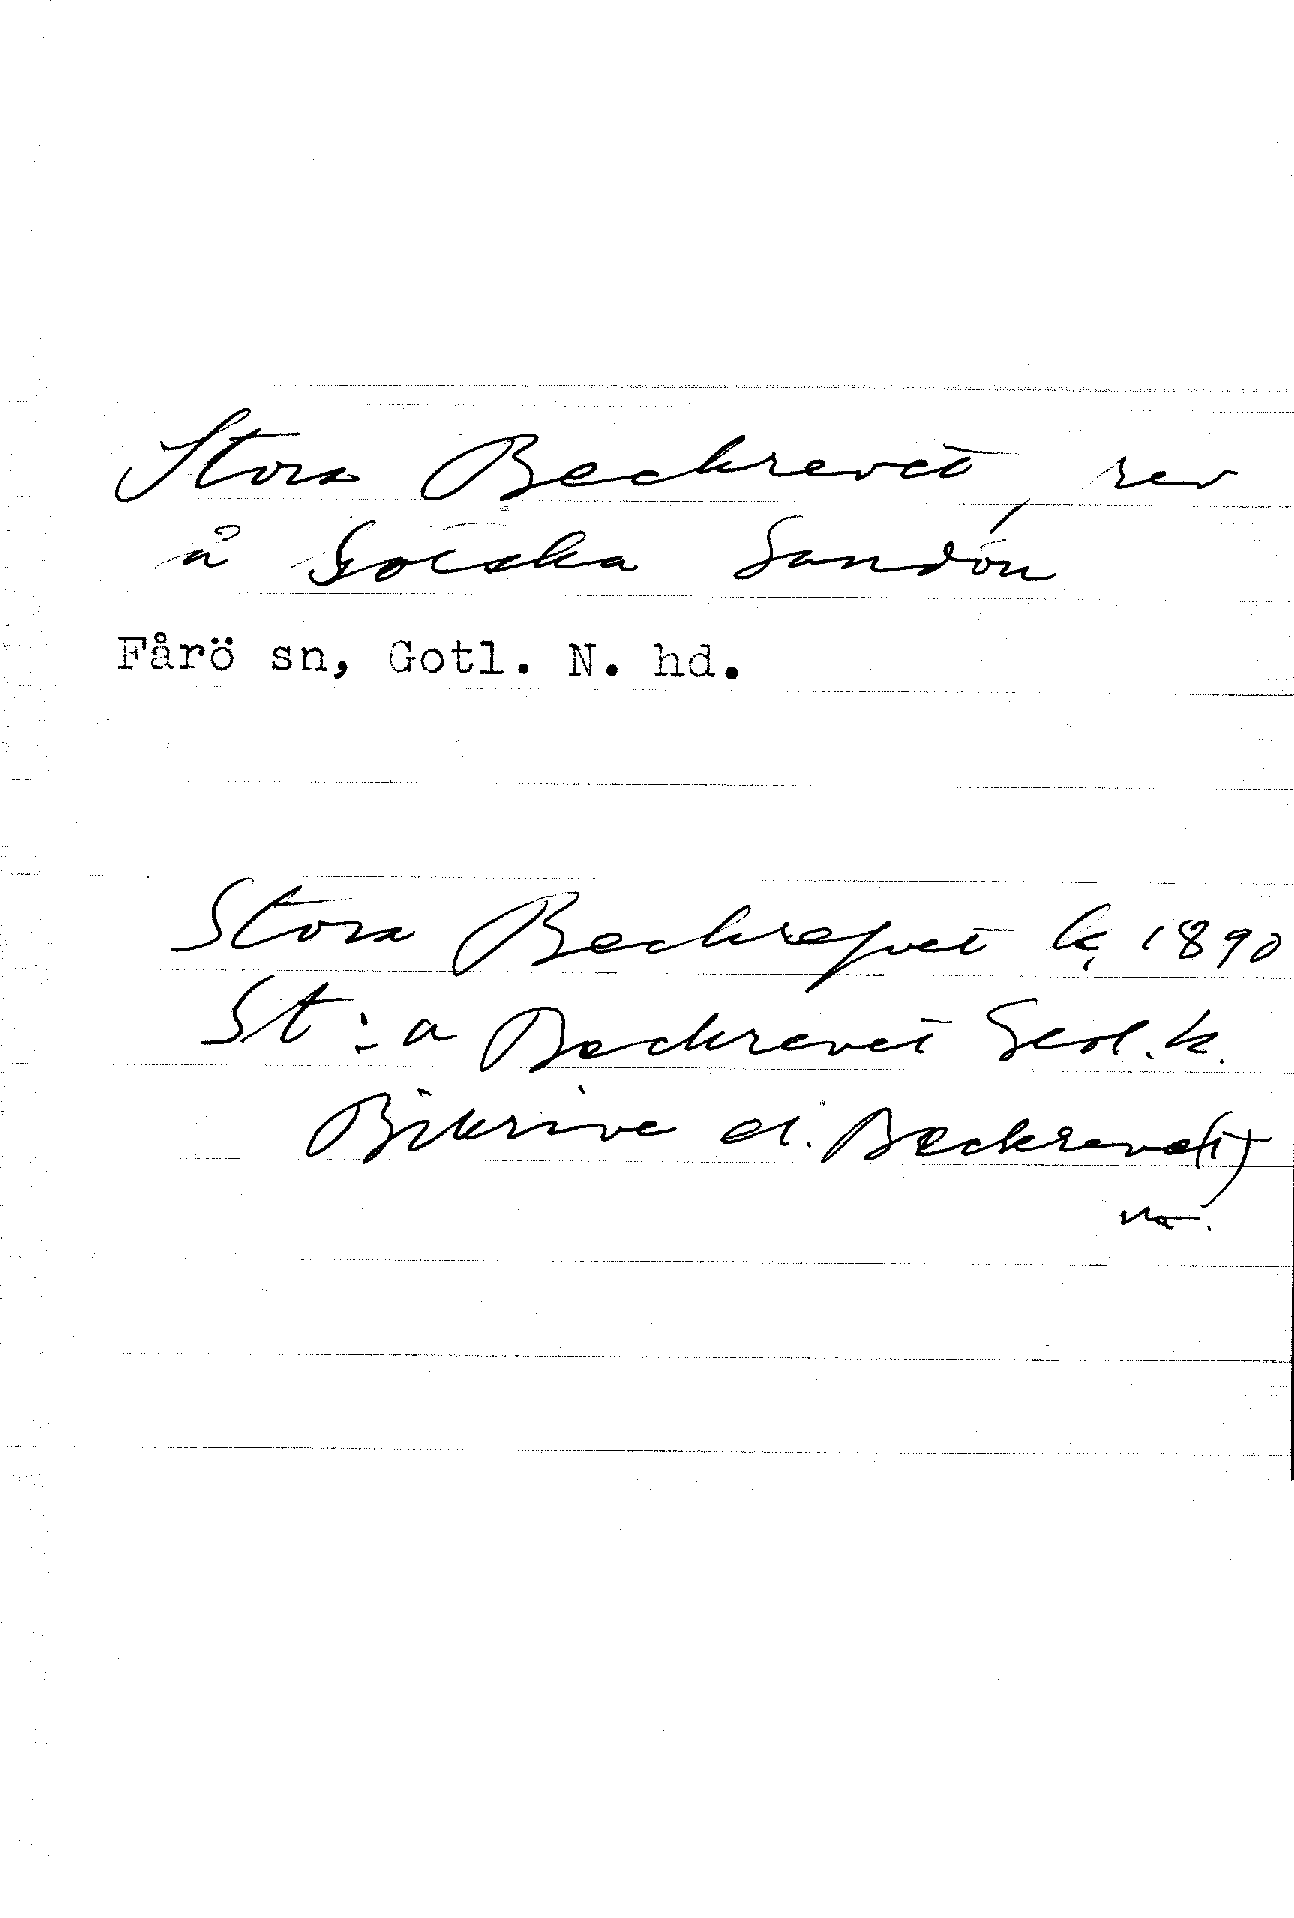 Stora Beckrevet, rev
å Gotska Sandön
Fårö sn, Gotl. N. hd.
Stora Beckrefvet k, 1890
St:a Beckrevet Geol. k.
el. Beckreve(t)